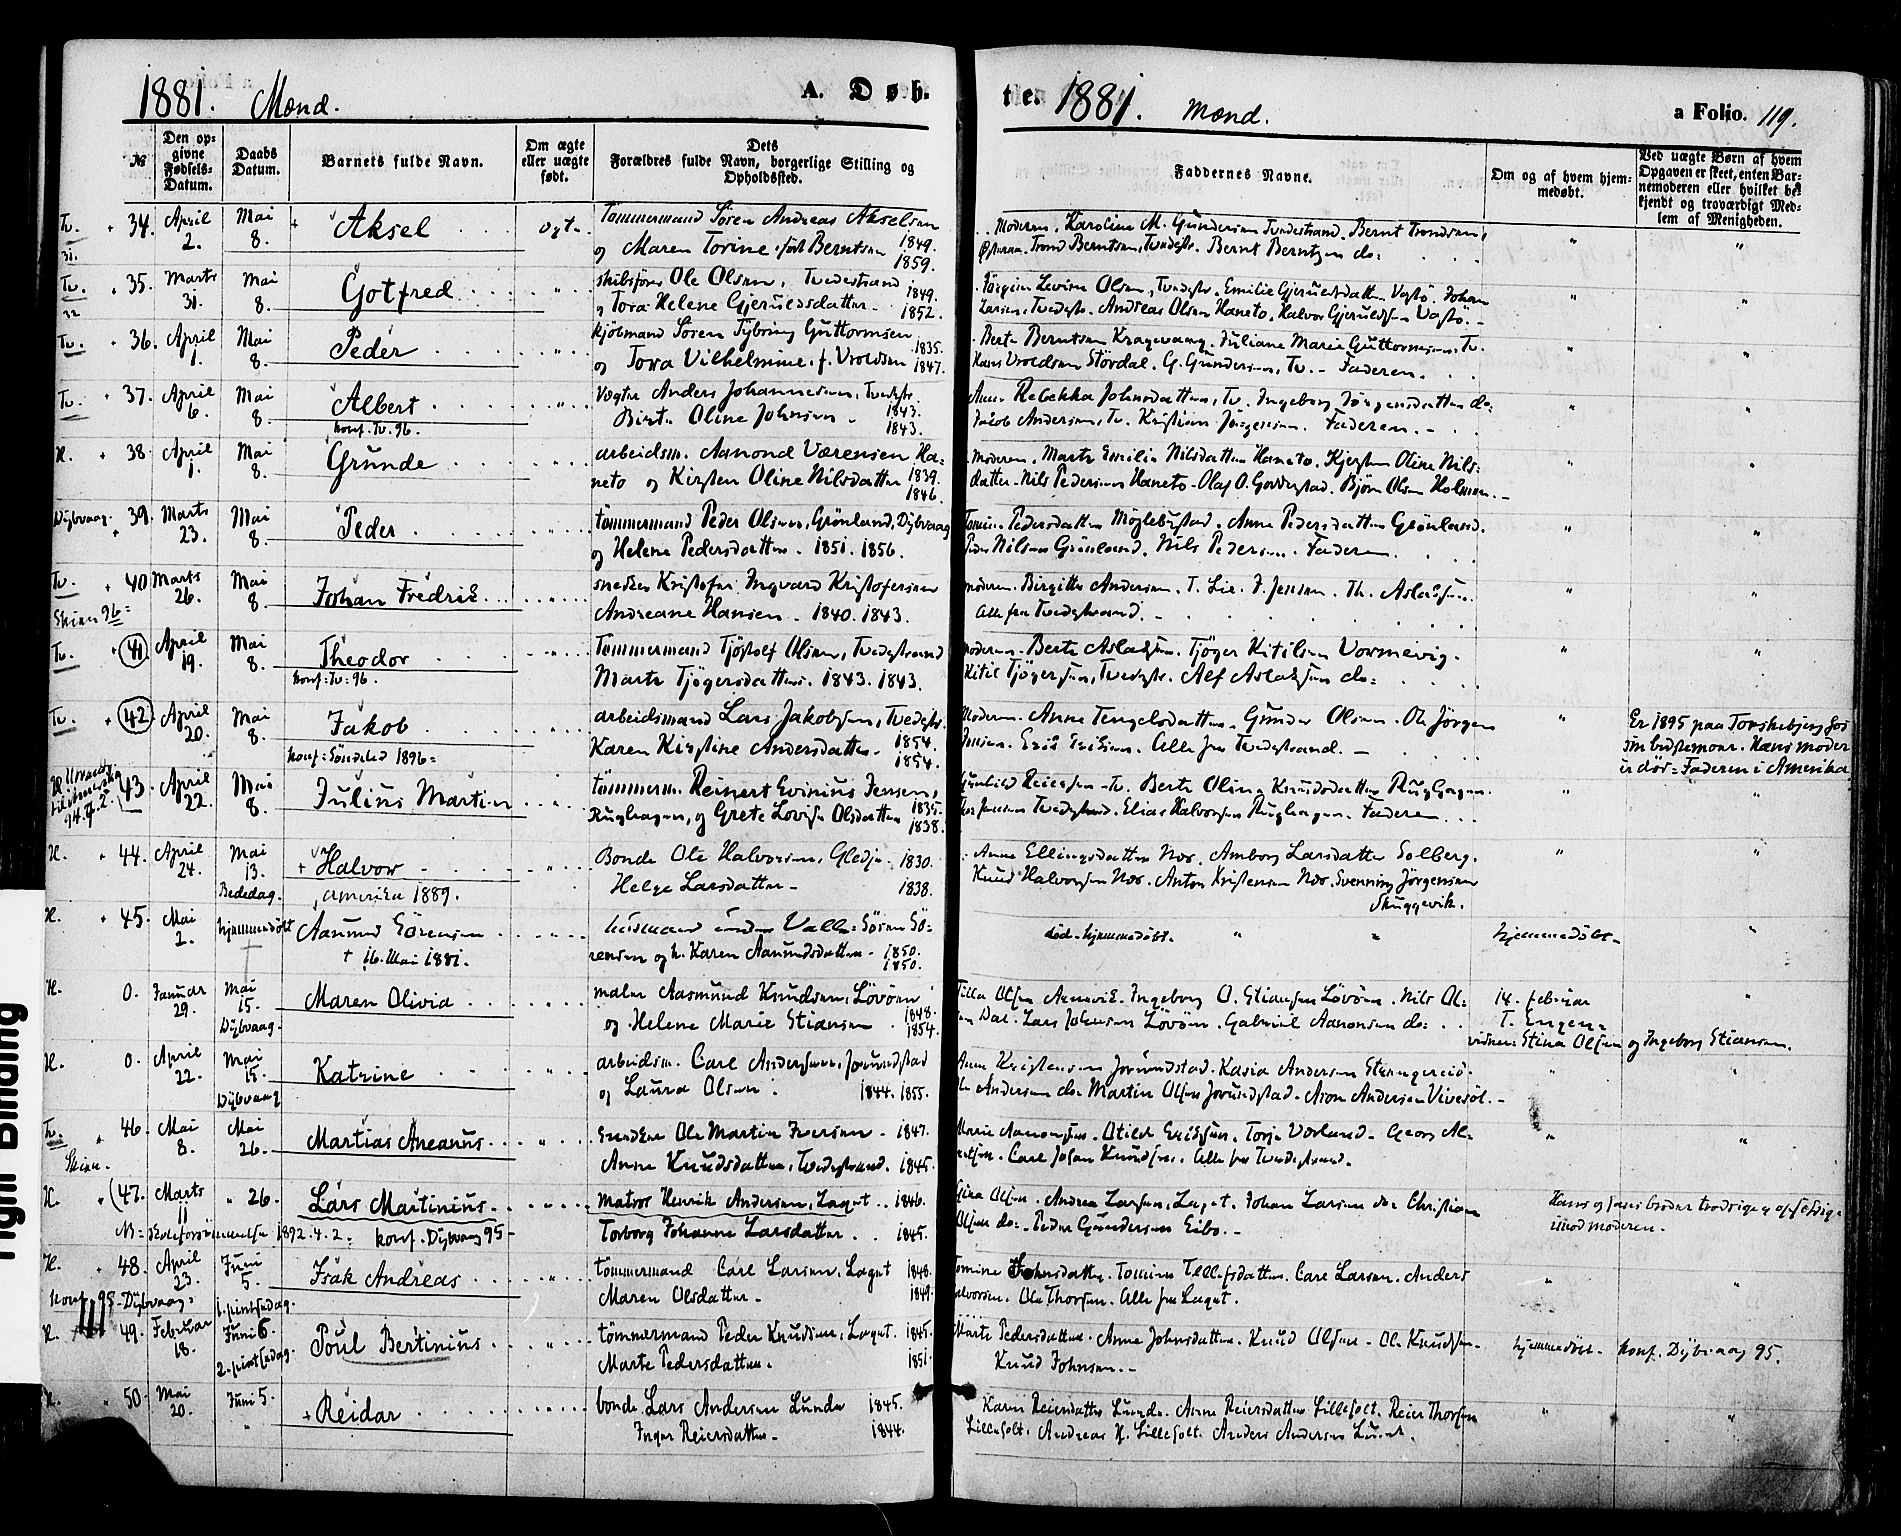 1881. Mænd. A. Døb-
te. 1881. Mænd. a Folio. 119.
№ Den op-givne Fødsels-Datum. Daabs Datum. Barnets fulde Navn. Om ægte eller uægte født. Dets Forældres fulde Navn, borgerlige Stilling og Opholdssted.
Faddernes Navne. Om og af hvem hjem-medøbt. Ved uægte Børn af hvem Opgaven er skeet, enten Bar-nemoderen eller hvilket be-kjendt og troværdigt Med-lem af Menigheden.
Tv. 34. April 2. Mai 8. Aksel ogt. Tømmermand Søren Andreas Akselsen 1849.
og Maren Torine født Berntsen 1859.
Moderen. Karoline M. Gundersen Tvedestrand. Bernt Trondsen,
Trond Berntsen, Tvedestr. Bernt Berntzen do:
Tv. 35. Marts 31. Mai 8. Gotfred " skibsfører Ole Olsen, Tvedestrand 1849.
og Tora Helene Gjeruldsdatter 1852.
Levine Olsen, Tvedestr. Emilie Gjeruldsdatter Vagtö. Johan
Larsen, Tvedestr. Andreas Olsen Haneto, Halvor Gjeruldsen Vagtö.
Tv. 36. April 1. Mai 8. Peder " kjøbmand Søren Tybring Guttormsen 1835.
og Tora Vilhelmine, f. Vroldsen 1847.
Berte Berntsen Kragevaag. Juliane Marie Guttormsen, Tv.
Hans Vroldsen Stördal. G. Gundersen, Tv. Faderen.
Tv. 37. April 6. Mai 8. Albert " Vægter Anders Johannesen, Tvedestr. 1843.
konf. Tv. 96. Birte Oline Johnsen 1843.
Anne Rebekka Johnsdatter, Tv. Ingeborg Jörgensdatter do:
Jakob Andersen, Tv. Kristian Jörgensen. Faderen.
H. 38. April 1. Mai 8. Grunde " arbeidsm. Aanond Værensen Ha-
neto og Kirsten Oline Nilsdatter 1839. 1846.
Moderen. Marte Emilie Nilsdatter Haneto. Kjersten Oline Nils-
datter. Nils Pedersen Haneto. Olaf O. Goderstad. Björn Olsen Holmen.
Dybvaag. 39. Marts 23. Mai 8. Peder " tømmermand Peder Olsen, Grönland, Dybvaag
og Helene Pedersdatter. 1851. 1856.
Pedersdatter Möglebustad. Anne Pedersdatter Grönland.
Peder Nilsen Grönland. Nils Pedersen. Faderen.
Tv. 40 Marts 26. Mai 8. Johan Fredrik " snedker Kristofer Ingvard Kristofersen
Skien 96: Andreane Hansen. 1840. 1843.
Moderen. Birgitte Andersen. T. Lie. J. Jensen. Th. Aslaksen.
Alle fra Tvedestrand.
Tv. 41. April 19. Mai 8. Theodor " Tømmermand Tjöstolf Olsen, Tvedestrand
konf: Tv: 96. Marte Tjögersdatter. 1843. 1843.
Moderen. Berte Aslaksen. Tjöger Kitilsen Vormevig.
Kitil Tjögersen, Tvedestr. Alf Aslaksen do:
Tv. 42. April 20. Mai 8. Jakob " arbeidsmand Lars Jakobsen, Tvedestr. 1854.
konf: Söndeled 1896: Karen Kirstine Andersdatter. 1854.
Moderen. Anne Tengelsdatter. Gunder Olsen. Ole Jörgen
Jensen. Erik Eriksen. Alle fra Tvedestrand.
Er 1895 paa Torskebjerg hos
sin bedstemor. Hans moder
er död: Faderen i Amerika
H. 43. April 22. Mai 8. Julius Martin " tømmerm. Reinert Evinius Jensen, 1835.
94. Rughagen, og Grete Lovise Olsdatter 1838.
Gunhild Reiersen Tv. Berte Oline Knudsdatter Rughagen.
Jensen Tvedestrand. Elias Halvorsen Rughagen. Faderen.
H. 44. April 24. Mai 13. Bededag. Halvor " Bonde Ole Halvorsen, Gledje 1830.
Amerika 1889. Helge Larsdatter 1838.
Anne Ellingsdatter Næs. Amborg Larsdatter Solberg.
Knud Halvorsen Næs. Anton Kristensen Næs. Svenning Jörgensen
Skuggevik.
H. 45. Mai 2. hjemmedöbt Aanund Sörensen " husmand under Valle Sören Sö-
† 16. Mai 1881. rensen og h. Karen Aanundsdatter 1850. 1850.
död. hjemmedöbt. " " hjemmedöbt.
H. 0. Januar 29. Mai 15. Dybvaag. Maren Olivia " maler Aasmund Knudsen, Lövöen 1848.
og Helene Marie Stiansen 1854.
Olsen Arnevik. Ingeborg O. Stiansen Lövöen. Nils Ol-
sen Dal. Lars Johnsen Lövöen. Gabriel Aanonsen do:
14. februar T. Engene
vidner: Stina Olsen og Ingeborg Stiansen.
H. 0. April 22. Mai 15. Dybvaag Katrine " arbeidsm. Carl Andersen, Jorundstad
og Laura Olsen 1844. 1855.
Anne Kristensen Jorundstad. Kasia Andersen Strengereid.
Andersen do. Martin Olsen Jorundstad. Aron Andersen Vivesöl.
Tv. 46. Mai 8. Mai 26. Martias Aneanus " Ole Martin Iversen 1847.
Skien. Anne Knudsdatter, Tvedestrand. 1845.
Marie Aanonsen. Otilde Eriksen. Torje Vorland. Georg Al-
Carl Johan Knudsen. Alle fra Tvedestrand.
H. 47. Marts 11 " 26. Lars Martinius " matros Henrik Andersen, Laget 1846.
1892. 4. 2. konf. Dybvaag 95 Torborg Johanne Larsdatter 1845.
Gina Olsen. Andrea Larsen, Laget. Johan Larsen do. Christian
Olsen do. Peder Gundersen Eibo.
Hans og hans broder
imod moderen.
H. 48. April 23. Juni 5. 1. pintsedag. Isak Andreas " tømmermand Carl Larsen, Laget 1848.
konf 95 Dybvaag: Maren Olsdatter 1849.
Tomine Johnsdatter. Tomine Tellefsdatter. Carl Larsen. Anders
Halvorsen. Ole Thorsen. Alle fra Laget.
H. 49. Februar 18. Juni 6. 2. pintsedag. Poul Bertinius " tømmermand Peder Knudsen, Laget 1845.
Marte Pedersdatter. 1851.
Marte Pedersdatter. Anne Johnsdatter. Knud Olsen. Ol. Knudsen.
Knud Johnsen.
hjemmedöbt. konf. Dybvaag 95.
H. 50. Mai 20. Juni 5. Reidar " bonde Lars Andersen Lunde 1845.
Inger Reiersdatter 1844.
Karen Reiersdatter Lunde. Anne Reiersdatter Lilleholt. Reier Thorsen
Lilleholt. Andreas H. Lilleholt. Anders Andersen Lunde.
Right Binding